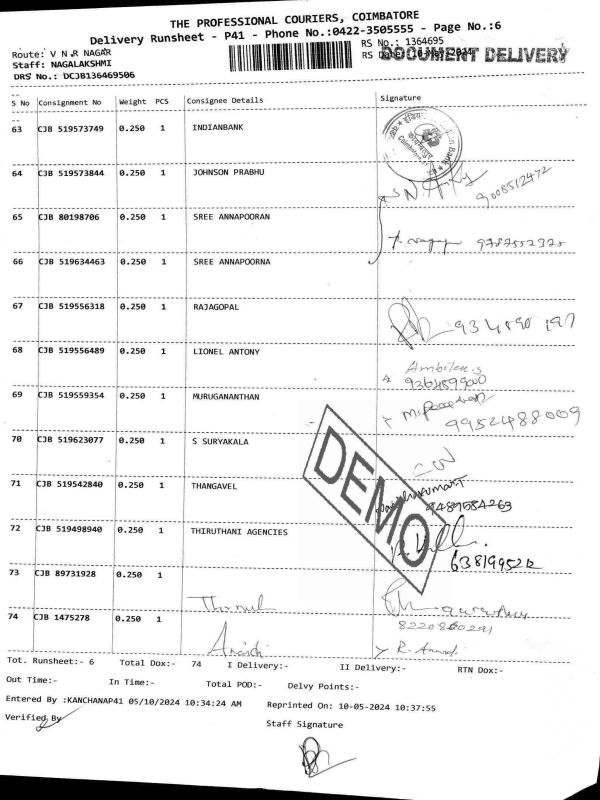 THE PROFESSIONAL COURIERS, COIMBATORE
Delivery Runsheet - P41 - Phone No.:0422-3505555 - Page No.:6
Route: V N R NAGAR
RS No.: 1364695
Staff: NAGALAKSHMI
RS Date: 10-May-2024
DOCUMENT DELIVERY
DRS No.: DCJB136469506
S No Consignment No Weight PCS Consignee Details Signature
63 CJB 519573749 0.250 1 INDIANBANK
64 CJB 519573844 0.250 1 JOHNSON PRABHU
9008512472
65 CJB 80198706 0.250 1 SREE ANNAPOORAN
9787552328
66 CJB 519634463 0.250 1 SREE ANNAPOORNA
67 CJB 519556318 0.250 1 RAJAGOPAL
68 CJB 519556489 0.250 1 LIONEL ANTONY
69 CJB 519559354 0.250 1 MURUGANANTHAN
9952488009
70 CJB 519623077 0.250 1 S SURYAKALA
71 CJB 519542840 0.250 1 THANGAVEL
9489584263
DEMO
72 CJB 519498940 0.250 1 THIRUTHANI AGENCIES
73 CJB 89731928 0.250 1
74 CJB 1475278 0.250 1
Tot. Runsheet:- 6 Total Dox:- 74 I Delivery:- II Delivery:- RTN Dox:-
Out Time:- In Time:- Total POD:- Delvy Points:-
Entered By :KANCHANAP41 05/10/2024 10:34:24 AM Reprinted On: 10-05-2024 10:37:55
Verified By
Staff Signature